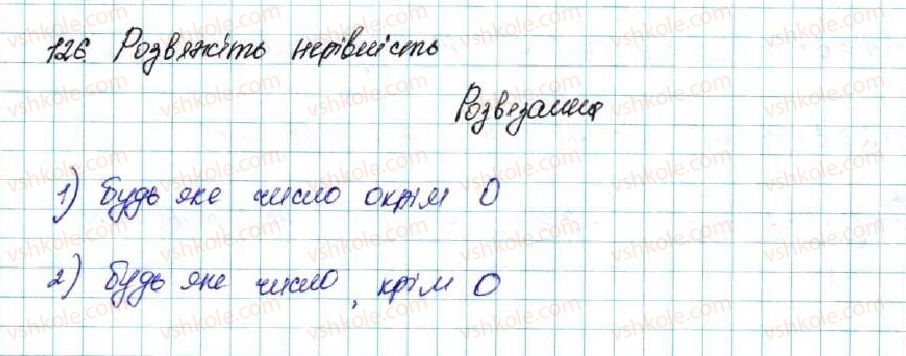 126. Розвяжіть нерівність
Розвязання
1) будь яке число окрім 0
2) будь яке число, крім 0